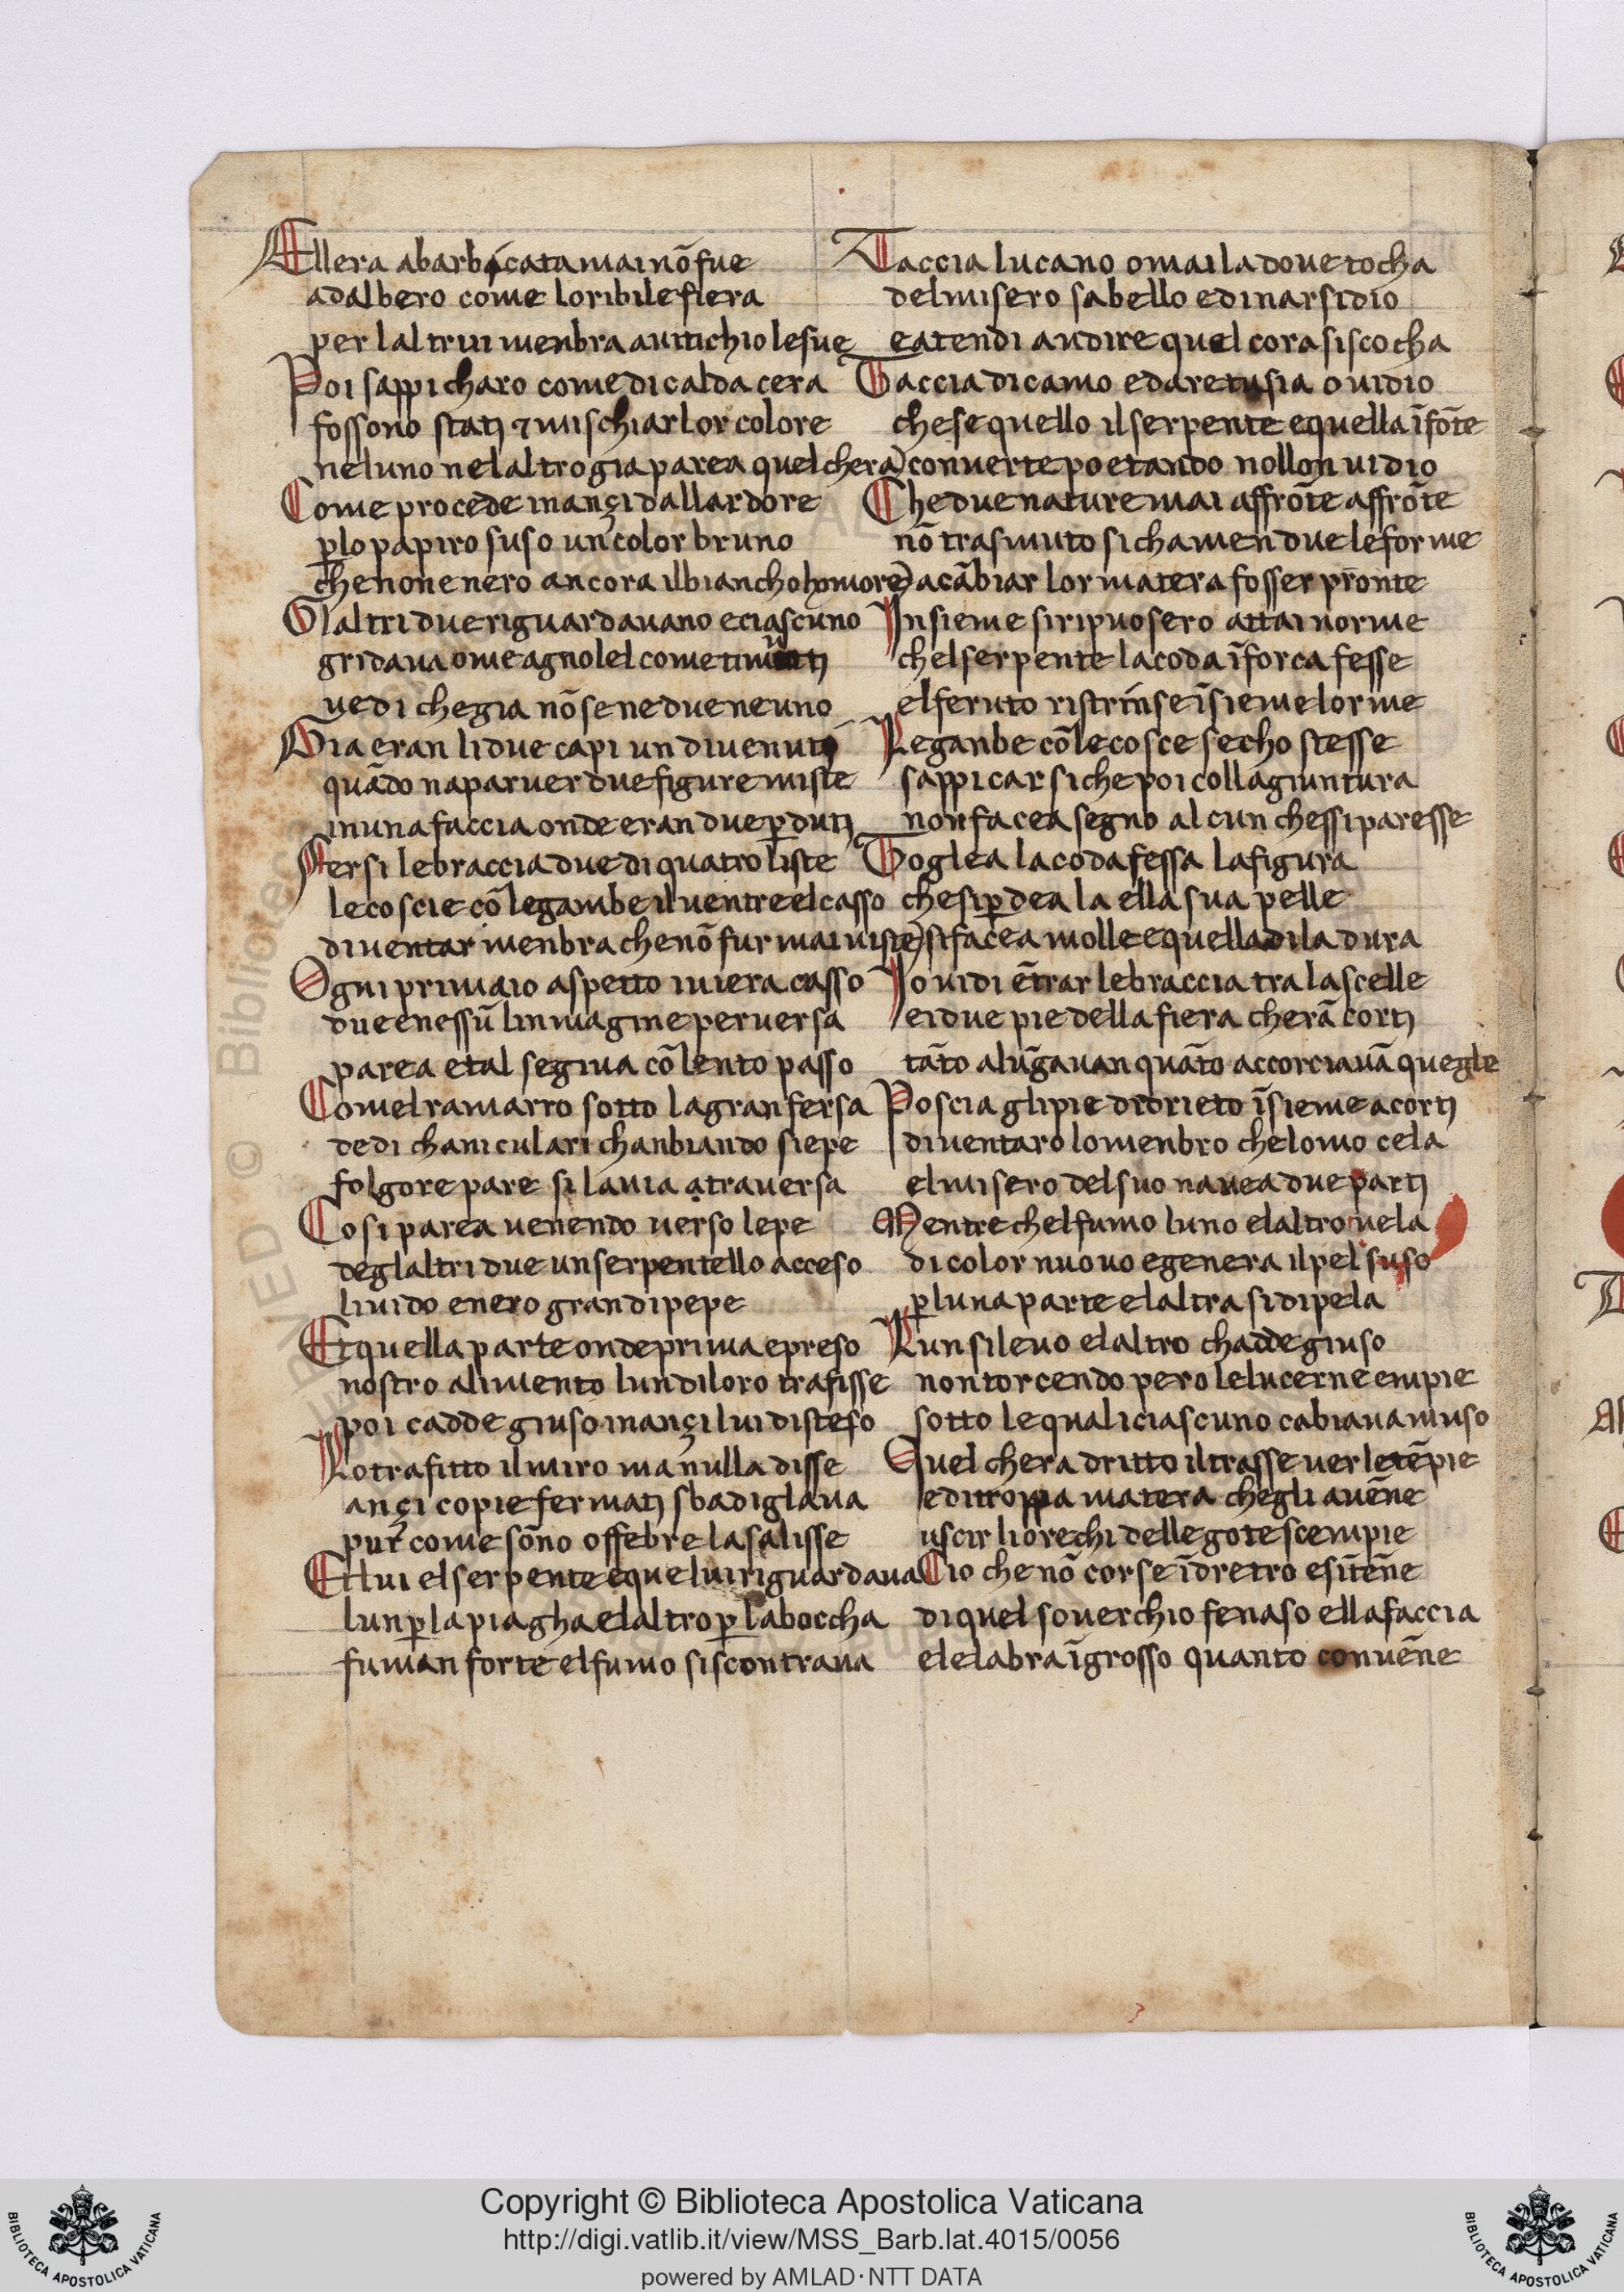 Ellera abarbicata mai nō fue
adalbero come loribile fiera
per laltrui menbra auitichio le sue
Poi sappicharo come di calda cera
fossono statj ⁊ mischiar lor colore
neluno nelaltro gia parea quel chera
Come procede inançi dallardore
ꝑlo papiro suso un color bruno
che none nero ancora il biancho homore
Glaltri due riguardauano e ciascuno
gridaua ome agnolel come ti
uedi che gia nō se ne due ne uno
Gia eran li due capi un diuenuti
quādo naparuer due figure miste
in una faccia onde eran due ꝑdutj
Fersi le braccia due di quatro liste
le coscie cō le gambe il uentre el casso
diuentar menbra che nō fur mai uiste
Ogni primaio aspetto iui era casso
due e nessū linmagine peruersa
parea e tal se giua cō lento passo
Comel ramarro sotto la gran fersa
de di chaniculari chanbiando siepe
folgore pare si la uia atrauersa
Cosi parea uenendo uerso lepe
deglaltri due un serpentello acceso
liuido e nero gran di pepe
Et quella parte onde prima e preso
nostro alimento lun di loro trafisse
poi cadde giuso inançi lui disteso
Lo trafitto il miro ma nulla disse
ançi co pie fermatj sbadiglaua
pur come sōno o ffebre lasalisse
Et lui el serpente e que lui riguardaua
lun ꝑ la piagha e laltro ꝑ la boccha
fuman forte el fumo si scontraua
Taccia lucano omai la doue tocha
del misero sabello e di narsidio
e atendi a udire quel cora si scocha
Taccia di camo e daretusia ouidio
che se quello il serpente e quella ī fōte
conuerte poetando no llo nuidio
Che due nature mai affrōte affrōte
nō trasmuto si chamendue le forme
a cābiar lor matera fosser pronte
Insieme si ripuosero attai norme
chel serpente la coda ī forca fesse
el feruto ristrinse īsieme lorme
Le ganbe cō le cosce secho stesse
sappicar si che poi co lla giuntura
non facea segno alcun che ssi paresse
Toglea la coda fessa la figura
che si ꝑdea la e lla sua pelle
si facea molle e quella di la dura
Io uidi ētrar le braccia tra lascelle
e i due pie della fiera cherā cortj
tāto alūgauan quāto accorciauā quegle
Poscia gli pie di drieto īsieme acortj
diuentaro lo menbro che lomo cela
el misero del suo nauea due partj
Mentre chel fumo luno e laltro uela
di color nuouo e genera il pel suso
ꝑ luna parte e laltra si dipela
Lun si leuo e laltro chadde giuso
non torcendo pero le lucerne empie
sotto le quali ciascuno cabiaua muso
Quel chera dritto il trasse uer le tēpie
e di troppa matera che gli auēne
uscir li orechi delle gote scempie
Cio che nō corse ī dretro e si tēne
di quel souerchio fe naso e lla faccia
e le labra īgrosso quanto conuēne
Copyright © Biblioteca Apostolica Vaticana
http://digi.vatlib.it/view/MSS_Barb.lat.4015/0056
powered by AMLAD·NTT DATA
BIBLIOTECA APOSTOLICA VATICANA
BIBLIOTECA APOSTOLICA VATICANA